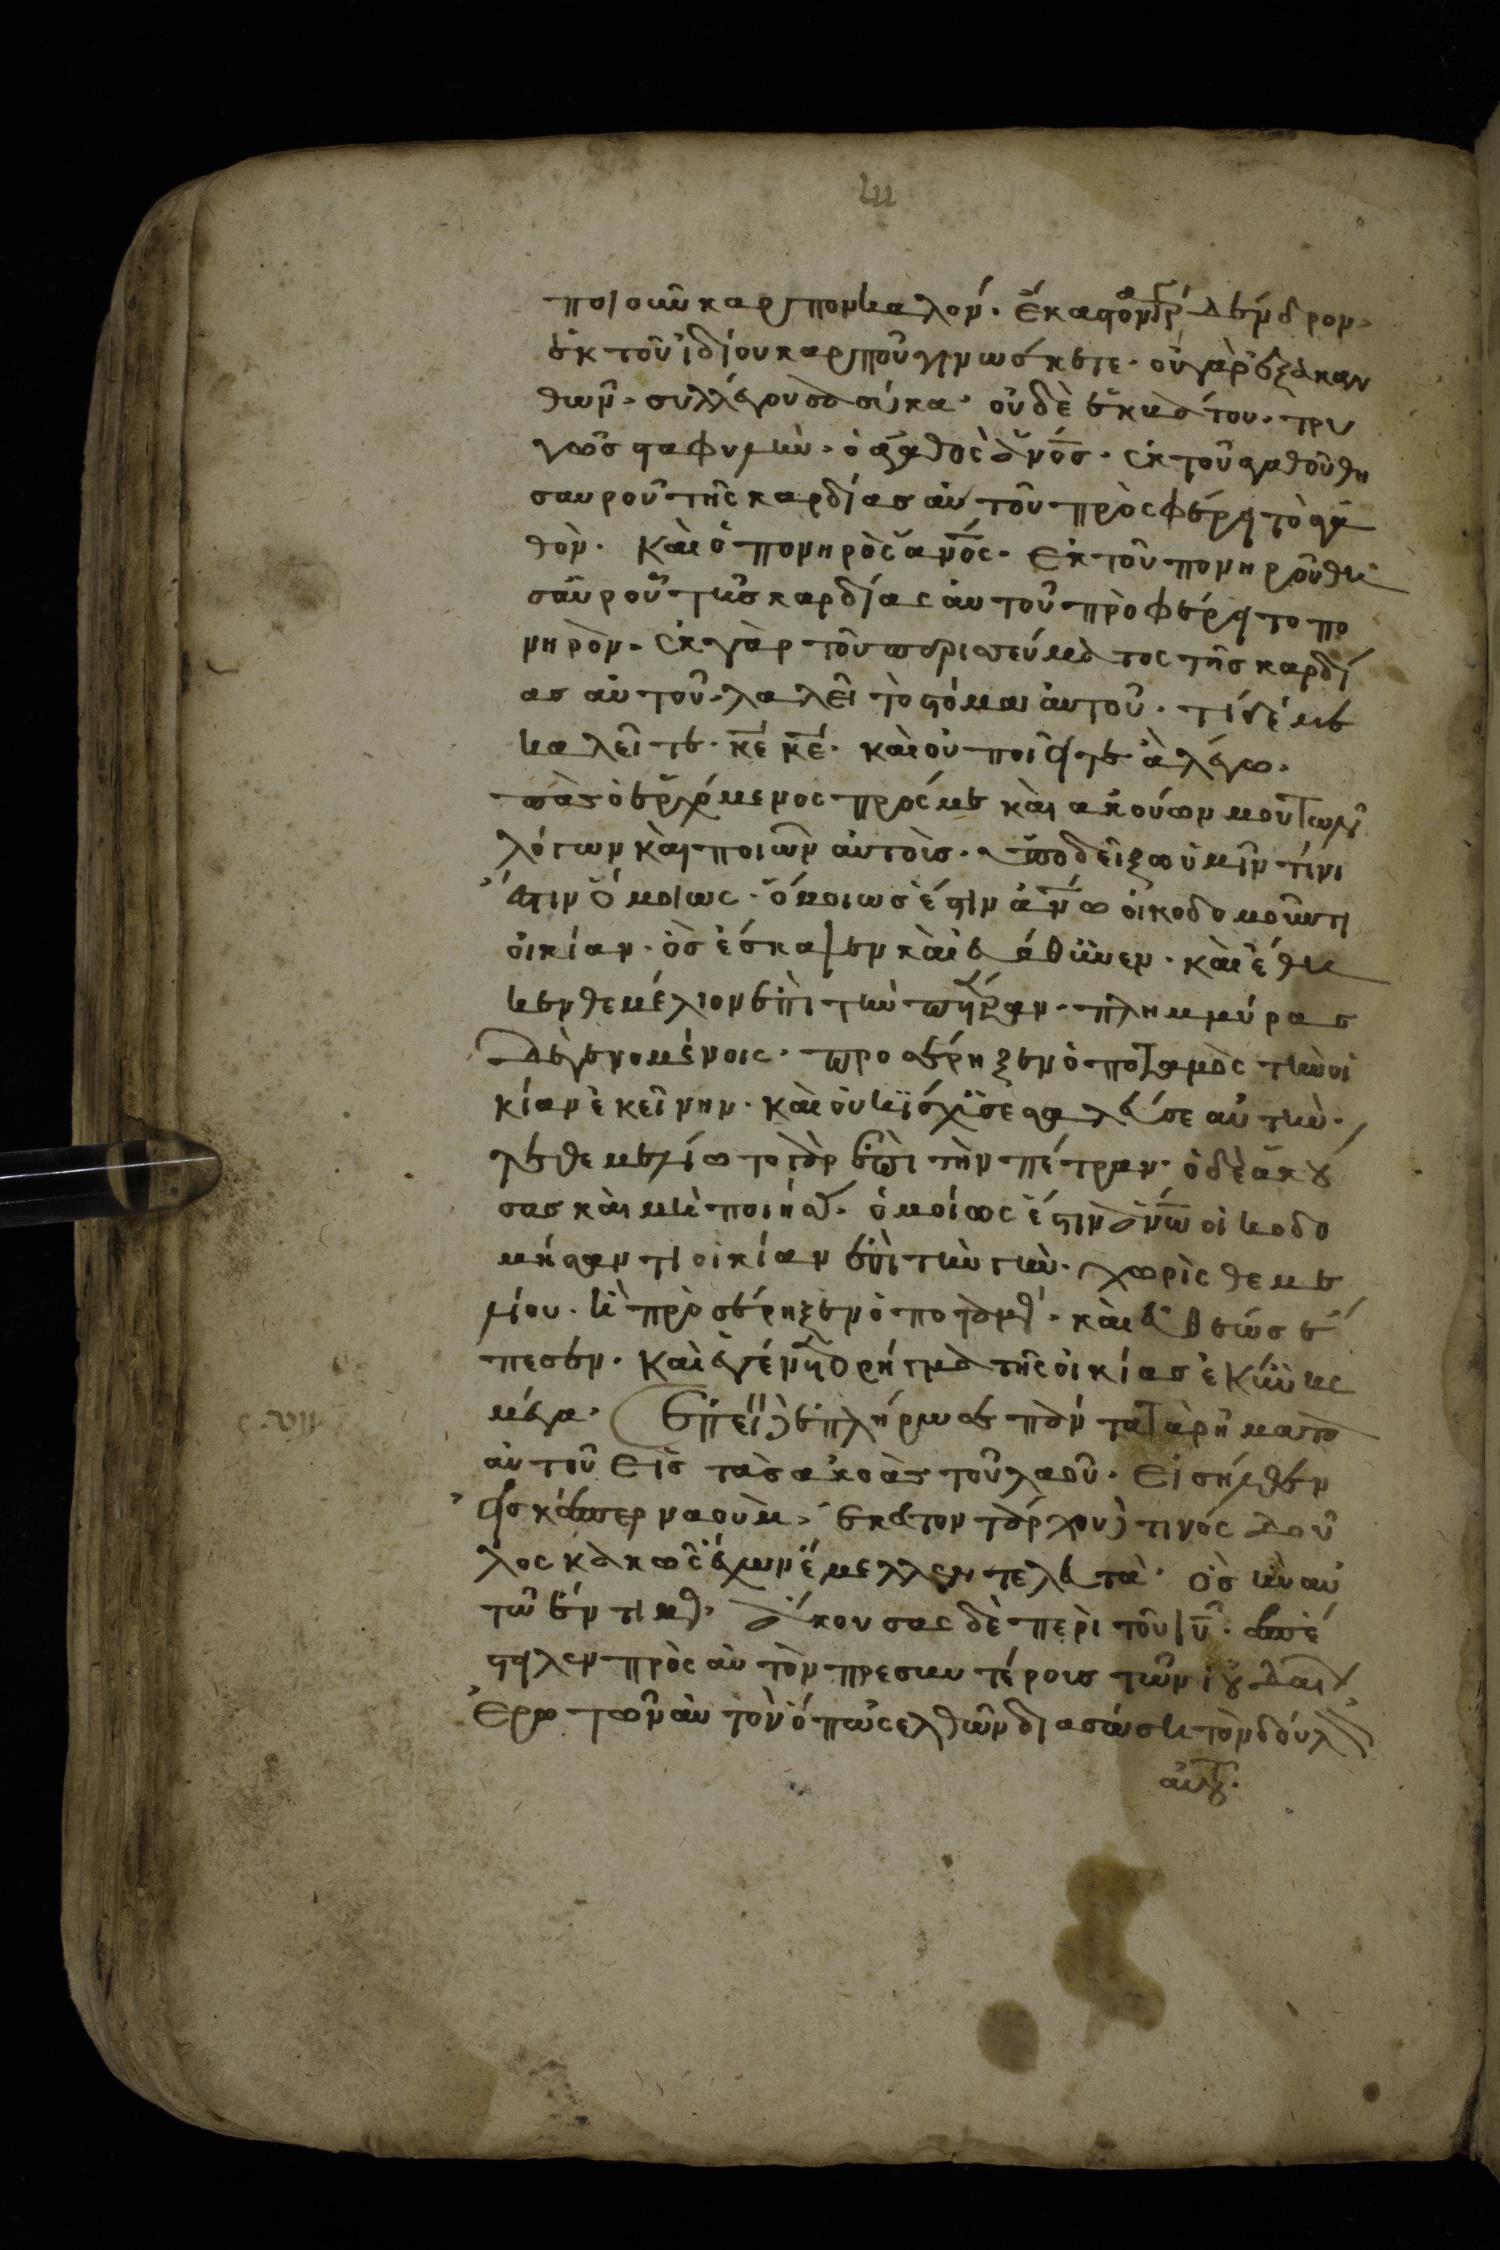 ποιοῦν καρπον καλόν. ἕκαστον γὰρ δένδρον.
ἐκ τοῦ ἰδίου καρποῦ γινώσκετε. οὐ γὰρ ἐξ ἀκαν
θων. συλλέγουσι σύκα. οὐδὲ ἐκ βάτου. τρυ
γῶσ σταφυλὴν. ὁ ἀγαθὸς ἄνο̅σ. ἐκ τοῦ ἀγαθοῦ θη
σαυροῦ τῆς καρδίασ αὐτοῦ πρὸςφέρει τὸ ἀγα
θὸν. Καὶ ὁ πονηρὸς ἄνο̅ς. Ἐκ τοῦ πονηροῦ θη
σαῦροῦ τῆσ καρδίας αὐτοῦ πρὸφέρει το πο
νηρὸν. ἐκ γὰρ τοῦ περισσεύματος τῆσ καρδί
ασ αὐτοῦ. λαλεῖ τὸ στόμα αὐτοῦ. τί δέ με
καλεῖτε. κ̅ε κ̅ε. καὶ οὐ ποιεῖτε ἃ λέγω.
πᾶσ ὁ ἐρχόμενος πρός με καὶ ακούων μου τῶν
λόγων καὶ ποιῶν αὐτοὶσ. ὑποδεῖξω ὑμῖν τίνι
ἐστιν ὅμοιως. ὅμοιωσ ἐστὶν ἀν̅ω οἰκοδομοῦντι
οἰκίαν. ὃσ ἐσκαψεν καὶ ἐβάθυνεν. καὶ ἐθη
κεν θεμέλιον ἐπὶ τὴν πέτραν. πλημμύρασ
δὲ γενομένοις. προσέρηξεν ὁ ποταμὸς τὴν οἰ
κίαν ἐκεῖνην. καὶ οὐκ ἴσχυσε σαλεῦσε αὐτὴν.
τεθεμελίωτο γὰρ ἐπὶ τὴν πέτραν. ὁ δὲ ἀκού
σασ καὶ μὴ ποιήσας. ὁμοίως ἐστὶν ἀν̅ω οἰκοδο
μήσαντι οἰκίαν ἐπὶ τὴν γὴν. χωρὶς θεμε
λίου. ἧ πρὸσέρηξεν ὁ ποταμὸς. καὶ εὐθεώσ ἔ
πεσεν. Καὶ ἐγένετο ρήγμα τῆς οἰκίασ ἐκείνης
μέγα. Ἐπεὶ δὲ ἐπλήρωσε πάντα τὰ ρήματα
αὐτοῦ Εἰσ τὰσ ακοὰσ τοῦ λαοῦ. Εἰσήλθεν
εἰσ καπερναοὺμ. ἑκατοντάρχου δέ τινός δοῦ
λος κακῶς ἔχων ἔμελλεν τελευτὰ. ὃσ ἦν αὐ
τῶ ἔντιμος. ἀκουσας δὲ περὶ τοῦ ι̅υ. ἀπέ
στηλεν πρὸς αὐτὸν πρεσβυτέροισ τῶν ἰουδαίων
Ἐρωτῶν αὐτὸν ὅπῶς ελθῶν διασώση τὸν δόυλον
αὐτοῦ.